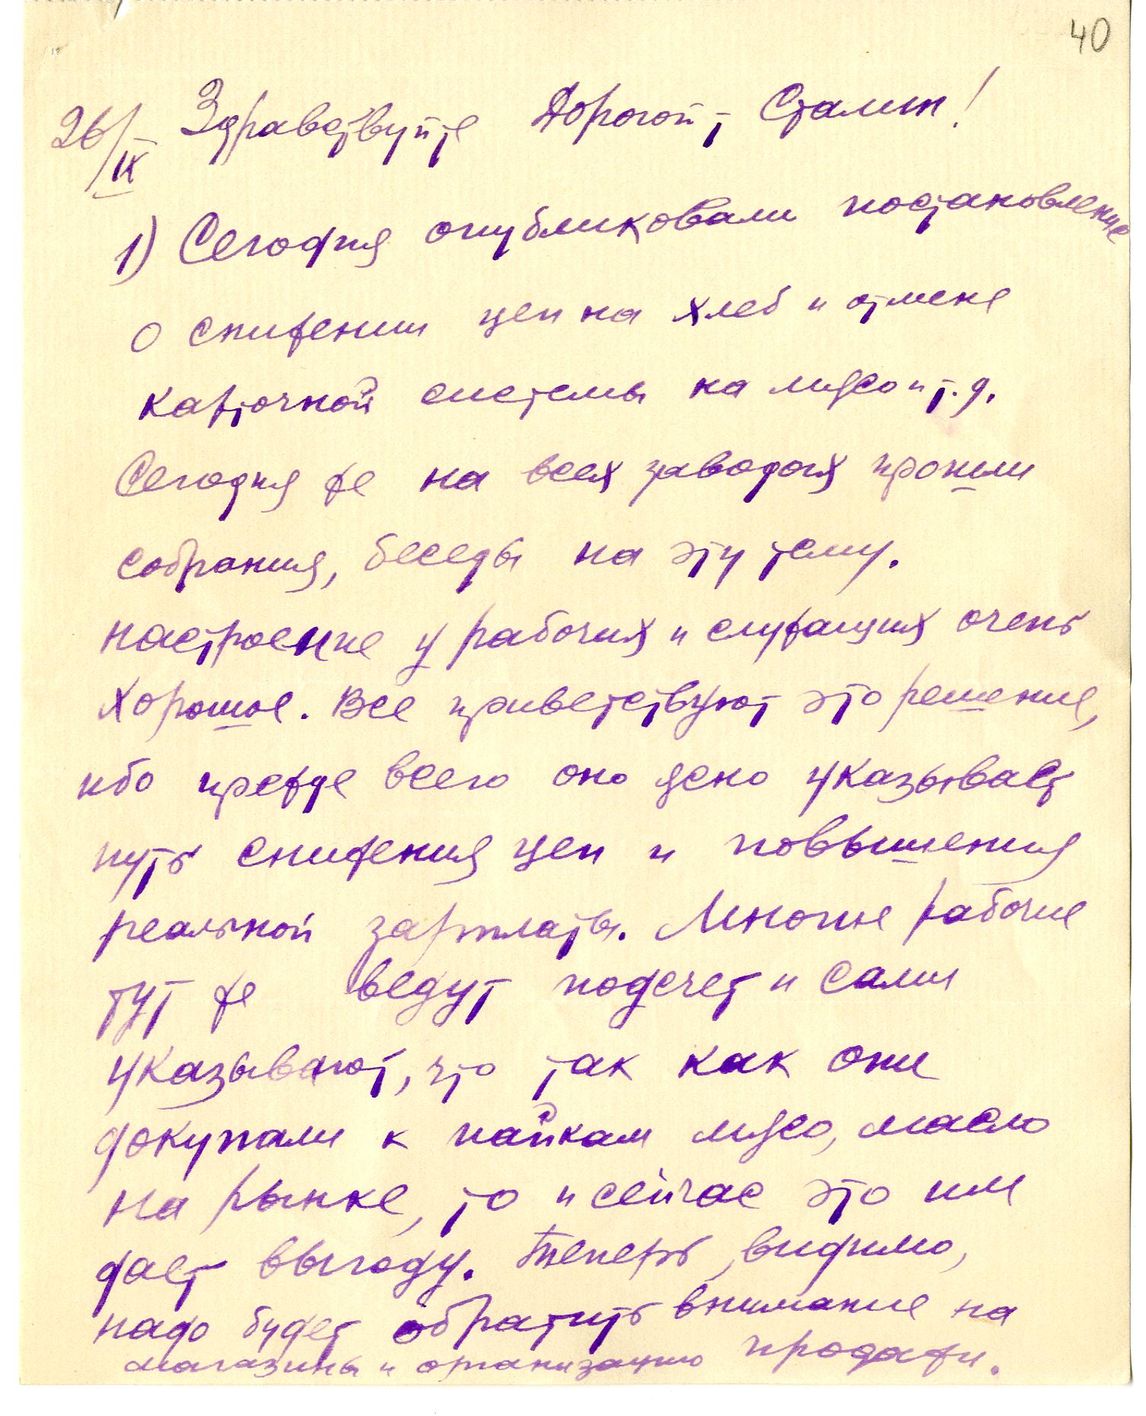 40
26/IX Здравствуйте Дорогой т. Сталин!
1) Сегодня опубликовали постановление
о снижении цен на хлеб и отмене
карточной системы на мясо и т.д.
Сегодня же на всех заводах прошли
собрания, беседы на эту тему.
Настроение у рабочих и служащих очень
хорошое. Все приветствуют это решение,
ибо прежде всего оно ясно указывает
путь снижения цен и повышения
реальной зарплаты. Многие рабочие
тут же ведут подсчет и сами
указывают, что так как они
докупали к пайкам мясо, масло
на рынке, то и сейчас это им
дает выгоду. Теперь, видимо,
надо будет обратить внимание на
магазины и организацию продажи.